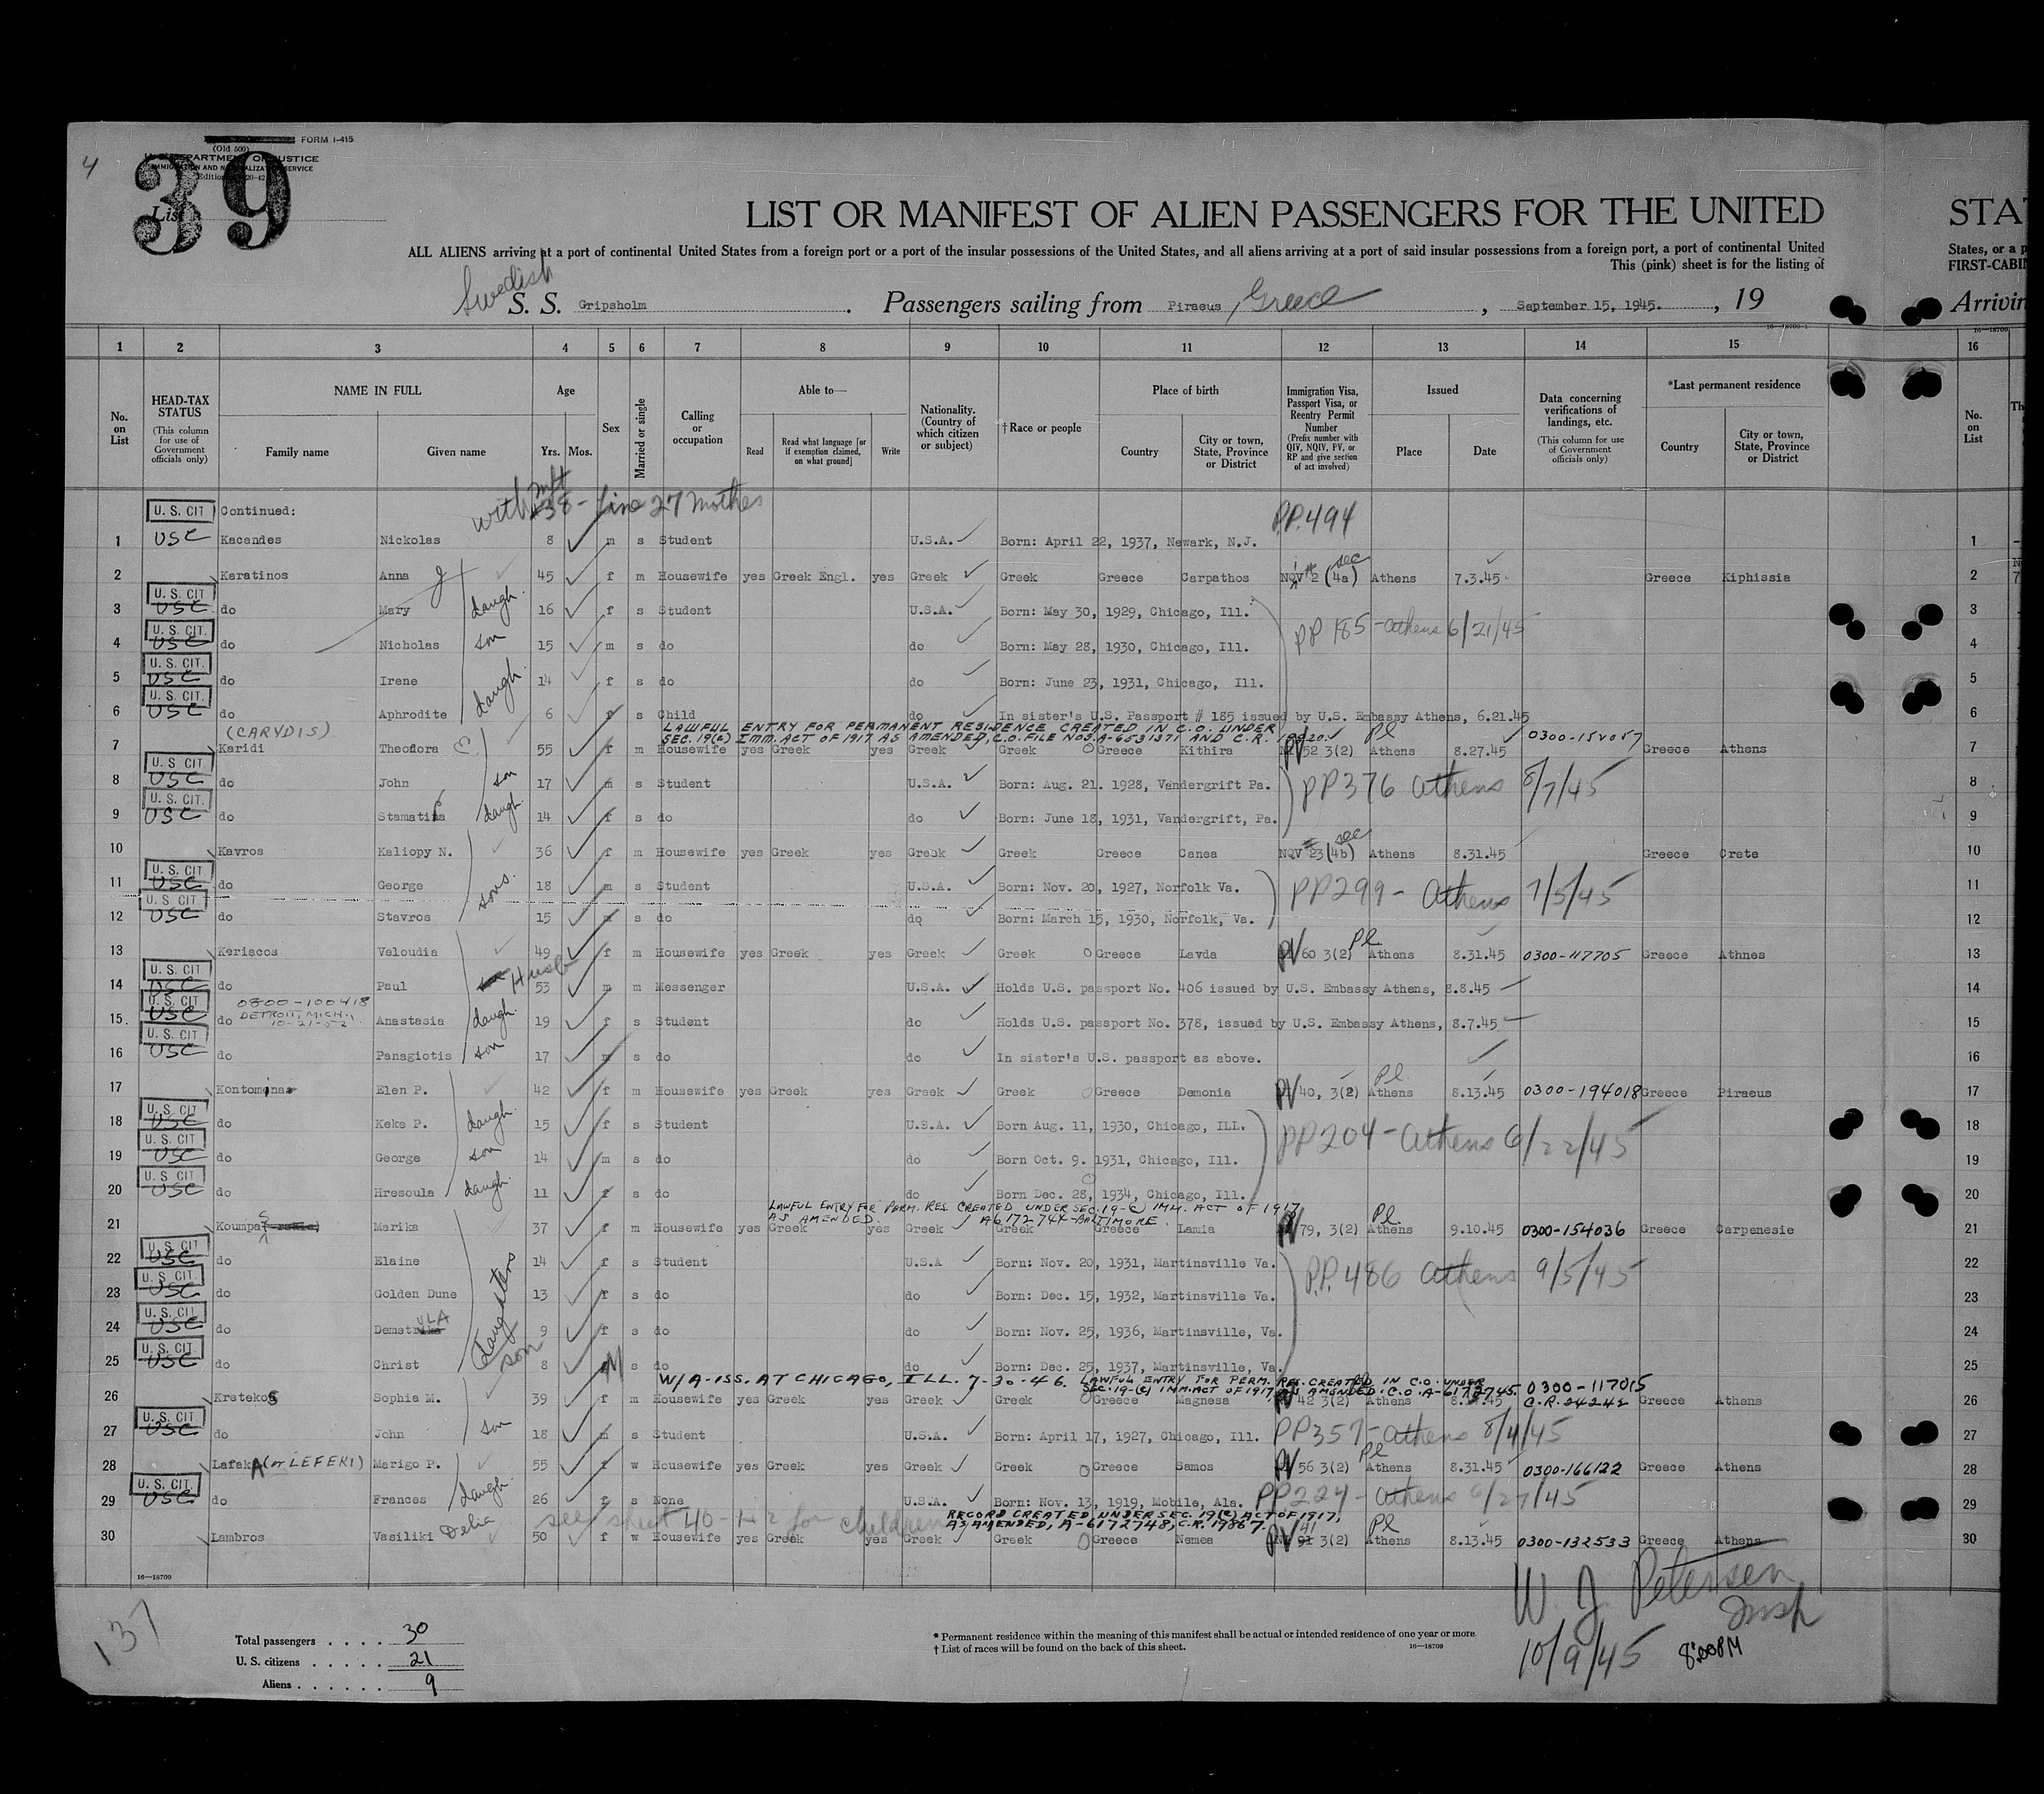 4
FORM I-415
(Old 500)
U. S. DEPARTMENT OF JUSTICE
IMMIGRATION AND NATURALIZATION SERVICE
39
List
LIST OR MANIFEST OF ALIEN PASSENGERS FOR THE UNITED STA
ALL ALIENS arriving at a port of continental United States from a foreign port or a port of the insular possessions of the United States, and all aliens arriving at a port of said insular possessions from a foreign port, a port of continental United States, or a p
This (pink) sheet is for the listing of FIRST-CABI
Swedish S. S. Gripsholm . Passengers sailing from Piraeus, Greece , September 15, 1945. , 19 Arrivin
16—18709-1 16—18709
1 2 3 4 5 6 7 8 9 10 11 12 13 14 15 16
No. on List
HEAD-TAX STATUS (This column for use of Government officials only)
NAME IN FULL Family name Given name
Age Yrs. Mos.
Sex
Married or single
Calling or occupation
Able to— Read Read what language [or if exemption claimed, on what ground] Write
Nationality. (Country of which citizen or subject)
†Race or people
Place of birth Country City or town, State, Province or District
Immigration Visa, Passport Visa, or Reentry Permit Number (Prefix number with QIV, NQIV, PV, or RP and give section of act involved)
Issued Place Date
Data concerning verifications of landings, etc. (This column for use of Government officials only)
*Last permanent residence Country City or town, State, Province or District
No. on List
Th
U. S. CIT Continued: with mft 38 - line 27 mother PP.494
1 USC Kacandes Nickolas 8 m s Student U.S.A. Born: April 22, 1937, Newark, N.J. 1
2 Karatinos Anna J 45 f m Housewife yes Greek Engl. yes Greek Greek Greece Carpathos NQIV # 2 sec (4a) Athens 7.3.45 Greece Kiphissia 2
U. S. CIT
3 USC do Mary daugh. 16 f s Student U.S.A. Born: May 30, 1929, Chicago, Ill. PP 185 - Athens 6/21/45 3
U. S. CIT.
4 USC do Nicholas son 15 m s do do Born: May 28, 1930, Chicago, Ill. 4
U. S. CIT.
5 USC do Irene daugh. 14 f s do do Born: June 23, 1931, Chicago, Ill. 5
U. S. CIT.
6 USC do Aphrodite 6 f s Child do In sister's U.S. Passport # 185 issued by U.S. Embassy Athens, 6.21.45 6
(CARYDIS) LAWFUL ENTRY FOR PERMANENT RESIDENCE CREATED IN C.O. UNDER
SEC. 19(c) IMM. ACT OF 1917 AS AMENDED, C.O. FILE NOS. A-6531371 AND C.R.
7 Karidi Theoflora 55 f m Housewife yes Greek yes Greek Greek Greece Kithira PV 52 3(2) Pl Athens 8.27.45 0300-152057 Greece Athens 7
U. S. CIT
8 USC do John son 17 m s Student U.S.A. Born: Aug. 21. 1928, Vandergrift Pa. PP376 Athens 8/7/45 8
U. S. CIT.
9 USC do Stamatina daugh. 14 f s do do Born: June 18, 1931, Vandergrift, Pa. 9
10 Kavros Kaliopy N. 36 f m Housewife yes Greek yes Greek Greek Greece Canea NQV # 23 sec (4b) Athens 8.31.45 Greece Crete 10
U. S. CIT
11 USC do George sons. 18 m s Student U.S.A. Born: Nov. 20, 1927, Norfolk Va. PP299 - Athens 7/5/45 11
U. S. CIT
12 USC do Stavros 15 m s do do Born: March 15, 1930, Norfolk, Va. 12
13 Keriacos Veloudia 49 f m Housewife yes Greek yes Greek Greek Greece Lavda PV 60 3(2) Pl Athens 8.31.45 0300-117705 Greece Athnes 13
U. S. CIT
14 USC do Paul Husb 53 m m Messenger U.S.A. Holds U.S. passport No. 406 issued by U.S. Embassy Athens, 8.8.45 14
U. S. CIT. 0800-100418
DETROIT, MICH.
10-21-52
15 USC do Anastasia daugh. 19 f s Student do Holds U.S. passport No. 378, issued by U.S. Embassy Athens, 8.7.45 15
U. S. CIT
16 USC do Panagiotis son 17 m s do do In sister's U.S. passport as above. 16
17 Kontominas Elen P. 42 f m Housewife yes Greek yes Greek Greek Greece Demonia PV 40, 3(2) Pl Athens 8.13.45 0300-194018 Greece Piraeus 17
U. S. CIT
18 USC do Keke P. daugh. 15 f s Student U.S.A. Born Aug. 11, 1930, Chicago, ILL. PP204 - Athens 6/22/45 18
U. S. CIT
19 USC do George son 14 m s do do Born Oct. 9. 1931, Chicago, Ill. 19
U. S. CIT
20 USC do Hresoula daugh. 11 f s do do Born Dec. 28, 1934, Chicago, Ill. 20
LAWFUL ENTRY FOR PERM. RES. CREATED UNDER SEC. 19-(c) IMM. ACT OF 1917
AS AMENDED. A6172744-BALTIMORE.
21 Koumpas Marika 37 f m Housewife yes Greek yes Greek Greek Greece Lamia PV 79, 3(2) Pl. Athens 9.10.45 0300-154036 Greece Carpenesie 21
U. S. CIT
22 USC do Elaine daughters 14 f s Student U.S.A Born: Nov. 20, 1931, Martinsville Va. P.P. 486 Athens 9/5/45 22
U. S. CIT.
23 USC do Golden Dune 13 f s do do Born: Dec. 15, 1932, Martinsville Va. 23
U. S. CIT.
24 USC do Demetrika ULA 9 f s do do Born: Nov. 25, 1936, Martinsville, Va. 24
U. S. CIT.
25 USC do Christ son 8 M s do do Born: Dec. 25, 1937, Martinsville, Va. 25
W/A-ISS. AT CHICAGO, ILL. 7-30-46. LAWFUL ENTRY FOR PERM. RES. CREATED IN C.O. UNDER
SEC. 19-(c) IMM. ACT OF 1917, AS AMENDED. C.O. A-6172745. 0300-117015
26 Kretekos Sophia M. 39 f m Housewife yes Greek yes Greek Greek Greece Magnesa PV 42 3(2) Athens C.R. 24242 Greece Athens 26
U. S. CIT.
27 USC do John son 18 m s Student U.S.A. Born: April 17, 1927, Chicago, Ill. PP357 - Athens 8/4/45 27
28 LafakA (or LEFERI) Marigo P. 55 f w Housewife yes Greek yes Greek Greek Greece Samos PV 56 3(2) Pl Athens 8.31.45 0300-166122 Greece Athens 28
U. S. CIT.
29 USC do Frances daugh. 26 f s None U.S.A. Born: Nov. 13, 1919, Mobile, Ala. PP224 - Athens 6/27/45 29
see sheet 40-1+2 for children RECORD CREATED UNDER SEC. 19(c) ACT OF 1917,
AS AMENDED, A-6172748, C.R. 19867.
30 Lambros Vasiliki Delia 50 f w Housewife yes Greek yes Greek Greek Greece Nemea PV 41 3(2) Pl Athens 8.13.45 0300-132533 Greece Athens 30
16—18709
W. J. Petersen
Insp
10/9/45 8:00PM
137
Total passengers . . . . 30
U. S. citizens . . . . . 21
Aliens . . . . . . 9
* Permanent residence within the meaning of this manifest shall be actual or intended residence of one year or more.
† List of races will be found on the back of this sheet. 16—18709